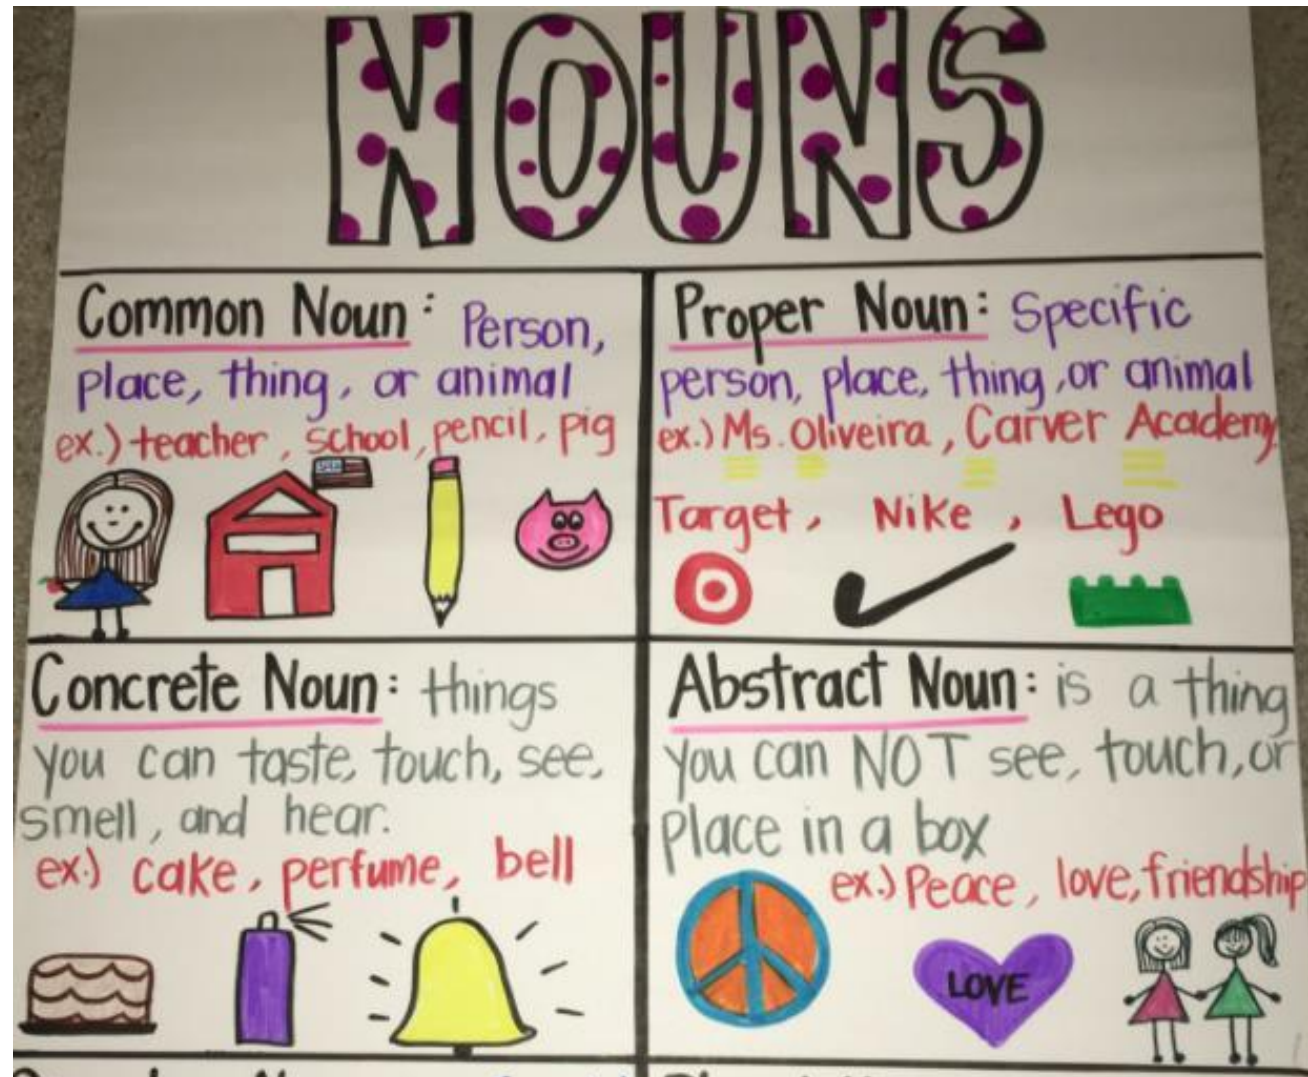 NOUNS
Common Noun: Person,
place, thing, or animal
ex.) teacher, school, pencil, pig
Proper Noun: Specific
person, place, thing, or animal
ex.) Ms. Oliveira, Carver Academy
Target, Nike, Lego
Concrete Noun: things
you can taste, touch, see,
smell, and hear.
ex.) cake, perfume, bell
Abstract Noun: is a thing
you can NOT see, touch, or
place in a box
ex.) Peace, love, friendship
LOVE